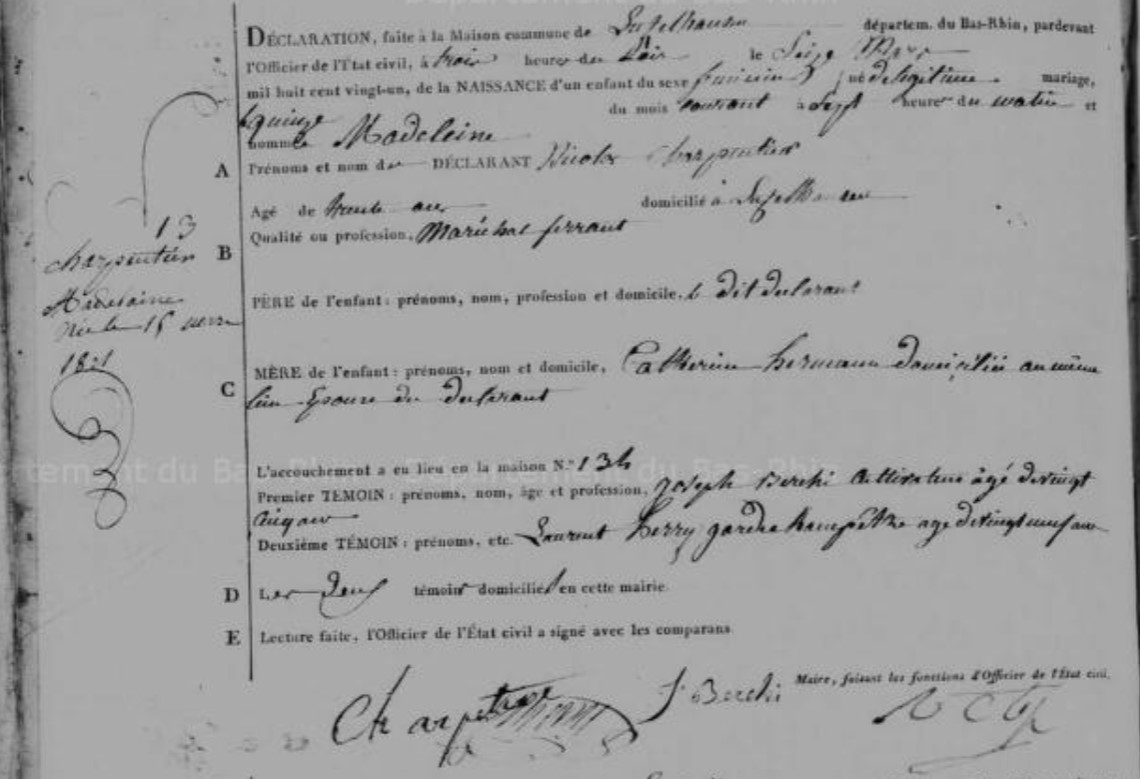 DÉCLARATION, faite à la Maison commune de Lutzelhausen départem. du Bas-Rhin, pardevant
l'Officier de l'État civil, à trois heures du Soir le Seize Mars
mil huit cent vingt-un, de la NAISSANCE d'un enfant du sexe feminin né de legitime mariage,
le quinze du mois courant à Sept heures du matin et
nommé Madeleine
A Prénoms et nom du DÉCLARANT Nicolas Charpentier
Agé de trente ans domicilié à Lutzelhausen
Qualité ou profession, Maréchal ferrant
B
PÈRE de l'enfant : prénoms, nom, profession et domicile, le dit declarant
MÈRE de l'enfant : prénoms, nom et domicile, Catherine hermann domiciliée au même
C lieu Epouse du declarant
L'accouchement a eu lieu en la maison N.°
Premier TÉMOIN : prénoms, nom, âge et profession, joseph Berchi Cultivateur âgé de vingt
cinq ans
Deuxième TÉMOIN : prénoms, etc. Laurent herry garde Champêtre age de vingt neuf ans
D Les Deux témoins domiciliés en cette mairie.
E Lecture faite, l'Officier de l'État civil a signé avec les comparans
Maire, faisant les fonctions d'Officier de l'État civil.
J Berchi
13
charpentier
Madelaine
née le 15 mars
1821